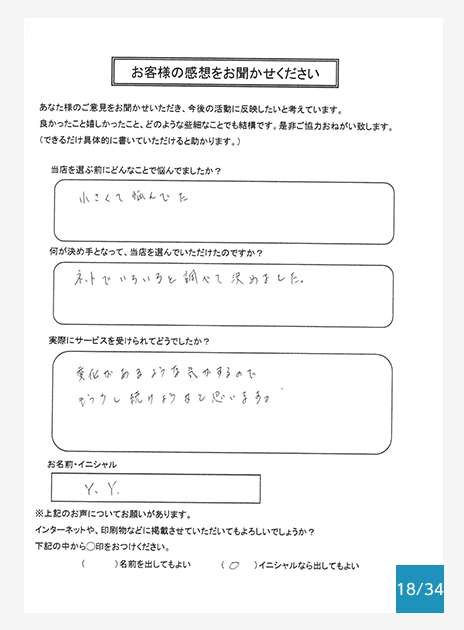 お客様の感想をお聞かせください
あなた様のご意見をお聞かせいただき、今後の活動に反映したいと考えています。
良かったこと嬉しかったこと、どのような些細なことでも結構です。是非ご協力おねがい致します。
(できるだけ具体的に書いていただけると助かります。)
当店を選ぶ前にどんなことで悩んでましたか?
小さくて悩んでた
何が決め手となって、当店を選んでいただけたのですか?
ネットでいろいろと調べて決めました。
実際にサービスを受けられてどうでしたか?
変化があるような気がするので
もう少し続けようなと思います。
お名前・イニシャル
Y. Y.
※上記のお声についてお願いがあります。
インターネットや、印刷物などに掲載させていただいてもよろしいでしょうか?
下記の中から◯印をおつけください。
( )名前を出してもよい (○)イニシャルなら出してもよい
18/34